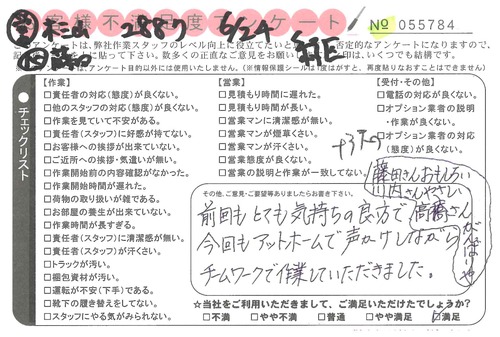 お客様不満足度アンケート
杉山 2887 6/24
№ 055784
のアンケートは、弊社作業スタッフのレベル向上に役立てたいと
否定的なアンケートになりますので、
に貼って下さい。数多くの正直なご意見をお願い
印は、いくつでも結構です。
アンケート目的以外には使用いたしません。(※情報保護シールは1度はがすと、再度貼りなおすことはできません)
チェックリスト
【作業】
□責任者の対応(態度)が良くない。
□他のスタッフの対応(態度)が良くない。
□作業を見ていて不安がある。
□責任者(スタッフ)に好感が持てない。
□お客様への挨拶が出来ていない。
□ご近所への挨拶・気遣いが無い。
□作業開始前の内容確認がなかった。
□作業開始時間が遅れた。
□荷物の取り扱いが雑である。
□お部屋の養生が出来ていない。
□作業時間が長すぎる。
□責任者(スタッフ)に清潔感が無い。
□責任者(スタッフ)が汗くさい。
□トラックが汚い。
□梱包資材が汚い。
□運転が不安(下手)である。
□靴下の履き替えをしてない。
□スタッフにやる気がみられない。
【営業】
□見積もり時間に遅れた。
□見積もり時間が長い。
□営業マンに清潔感が無い。
□営業マンが煙草くさい。
□営業マンが汗くさい。
□営業態度が良くない。
□営業の説明と作業が一致してない。
【受付・その他】
□電話の対応が良くない。
□オプション業者の説明
・作業が良くない。
□オプション業者の対応
(態度)が良くない。
藤田さんおもしろい
川内さんやさしい
高橋さん
がんばりや
その他、ご意見・ご要望等ありましたらお書き下さい。
前回もとても気持ちの良方で
今回もアットホームで声かけしながら
チームワークで作業していただきました。
☆当社をご利用いただきまして、ご満足いただけたでしょうか?
□不満 □やや不満 □普通 □やや満足 ☑満足